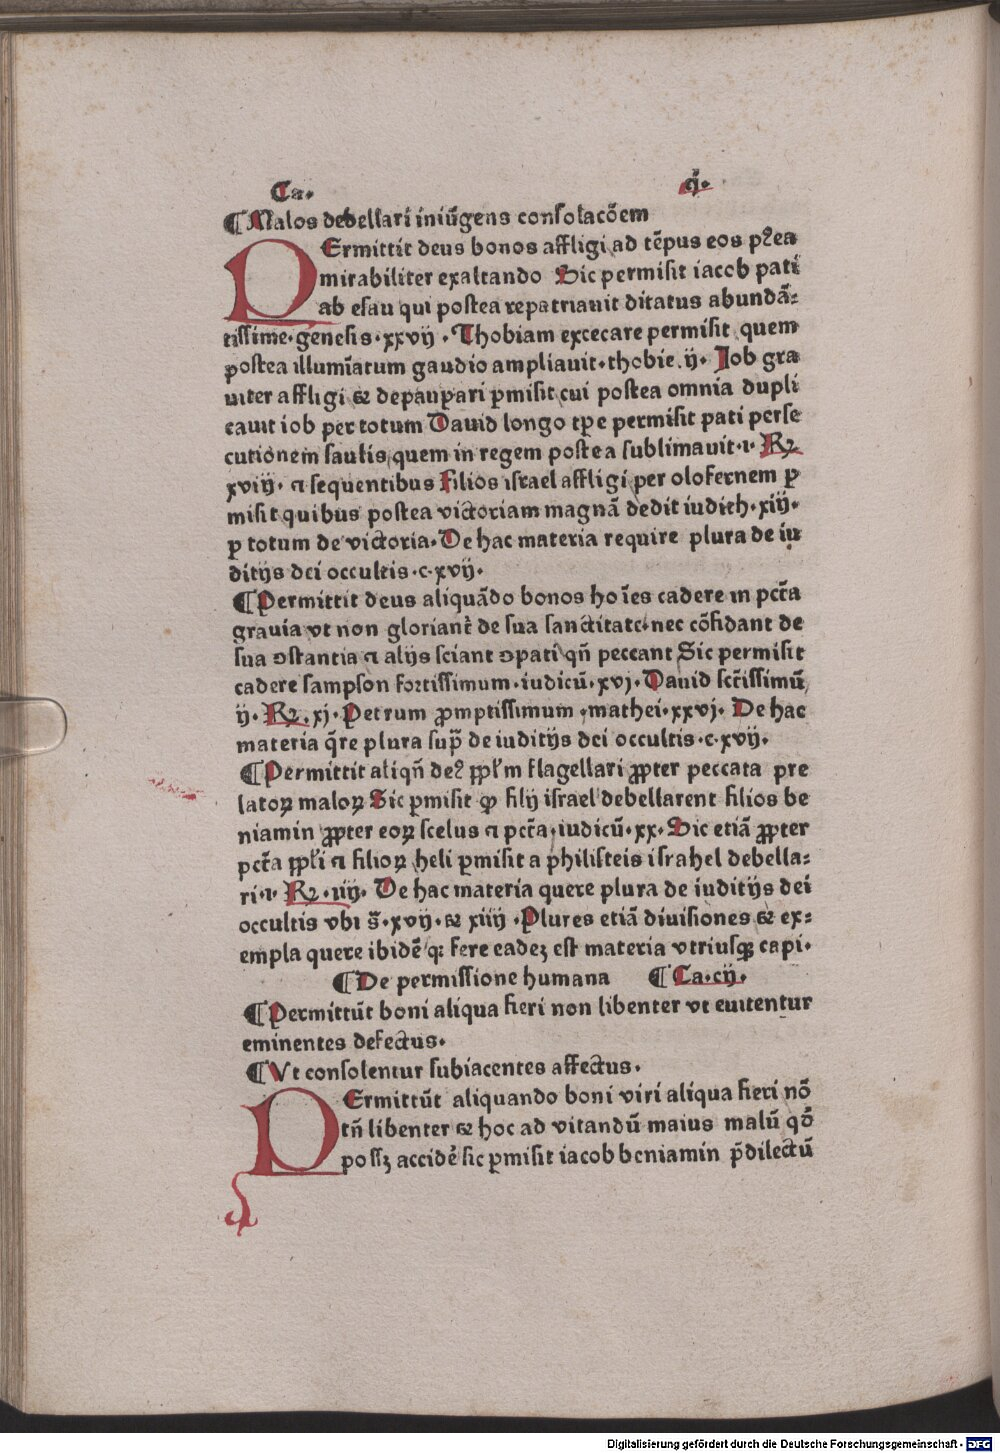 Ca. cj.
¶Malos debellari iniūgens consolacōem
PErmittit deus bonos affligi ad tēpus eos pꝰea
mirabiliter exaltando Sic permisit iacob pati
ab esau qui postea repatriauit ditatus abundā⸗
tissime.genesis.xxvij. Thobiam excecare permisit quem
postea illumīatum gaudio ampliauit.thobie.ij. Job gra
uiter affligi ⁊ depauꝑari ꝑmisit cui postea omnia dupli
cauit iob per totum Dauid longo tꝑe permisit pati perse
cutionem saulis quem in regem postea sublimauit.i. Rꝫ
xviij. ⁊ sequentibus Filios israel affligi per olofernem ꝑ
misit quibus postea victoriam magnā dedit iudith.xiij.
ꝑ totum de victoria. De hac materia require plura de iu
ditijs dei occultis.c.xvij.
¶Permittit deus aliquādo bonos hoīes cadere in pctā
grauia vt non gloriant᷑ de sua sanctitate nec cōfidant de
sua ꝯstantia ⁊ alijs sciant ꝯpati qn̄ peccant Sic permisit
cadere sampson fortissimum.iudicū.xvj. Dauid sctīssimū
ij. Rꝫ.xj. Petrum ꝓmptissimum.mathei.xxvj. De hac
materia q̄re plura sup̄ de iuditijs dei occultis.c.xvij.
¶Permittit aliqn̄ deꝰ ppl̄m flagellari ꝓpter peccata pre
latoꝝ maloꝝ Sic ꝑmisit ꝙ filij israel debellarent filios be
niamin ꝓpter eoꝝ scelus ⁊ pctā.iudicū.xx. Sic etiā ꝓpter
pctā ppl̄i ⁊ filioꝝ heli ꝑmisit a philisteis israhel debella⸗
ri.i. Rꝫ.iiij. De hac materia quere plura de iuditijs dei
occultis vbi s̄.xvij. ⁊ xiiij. Plures etiā diuisiones ⁊ ex⸗
empla quere ibidē qꝫ fere eadeꝫ est materia vtriusqꝫ capi.
¶De permissione humana ¶Ca.cij.
¶Permittūt boni aliqua fieri non libenter vt euitentur
eminentes defectus.
¶Vt consolentur subiacentes affectus.
PErmittūt aliquando boni viri aliqua fieri nō
tn̄ libenter ⁊ hoc ad vitandū maius malū qō
possꝫ accidē sic ꝑmisit iacob beniamin p̄dilectū
Digitalisierung gefördert durch die Deutsche Forschungsgemeinschaft - DFG